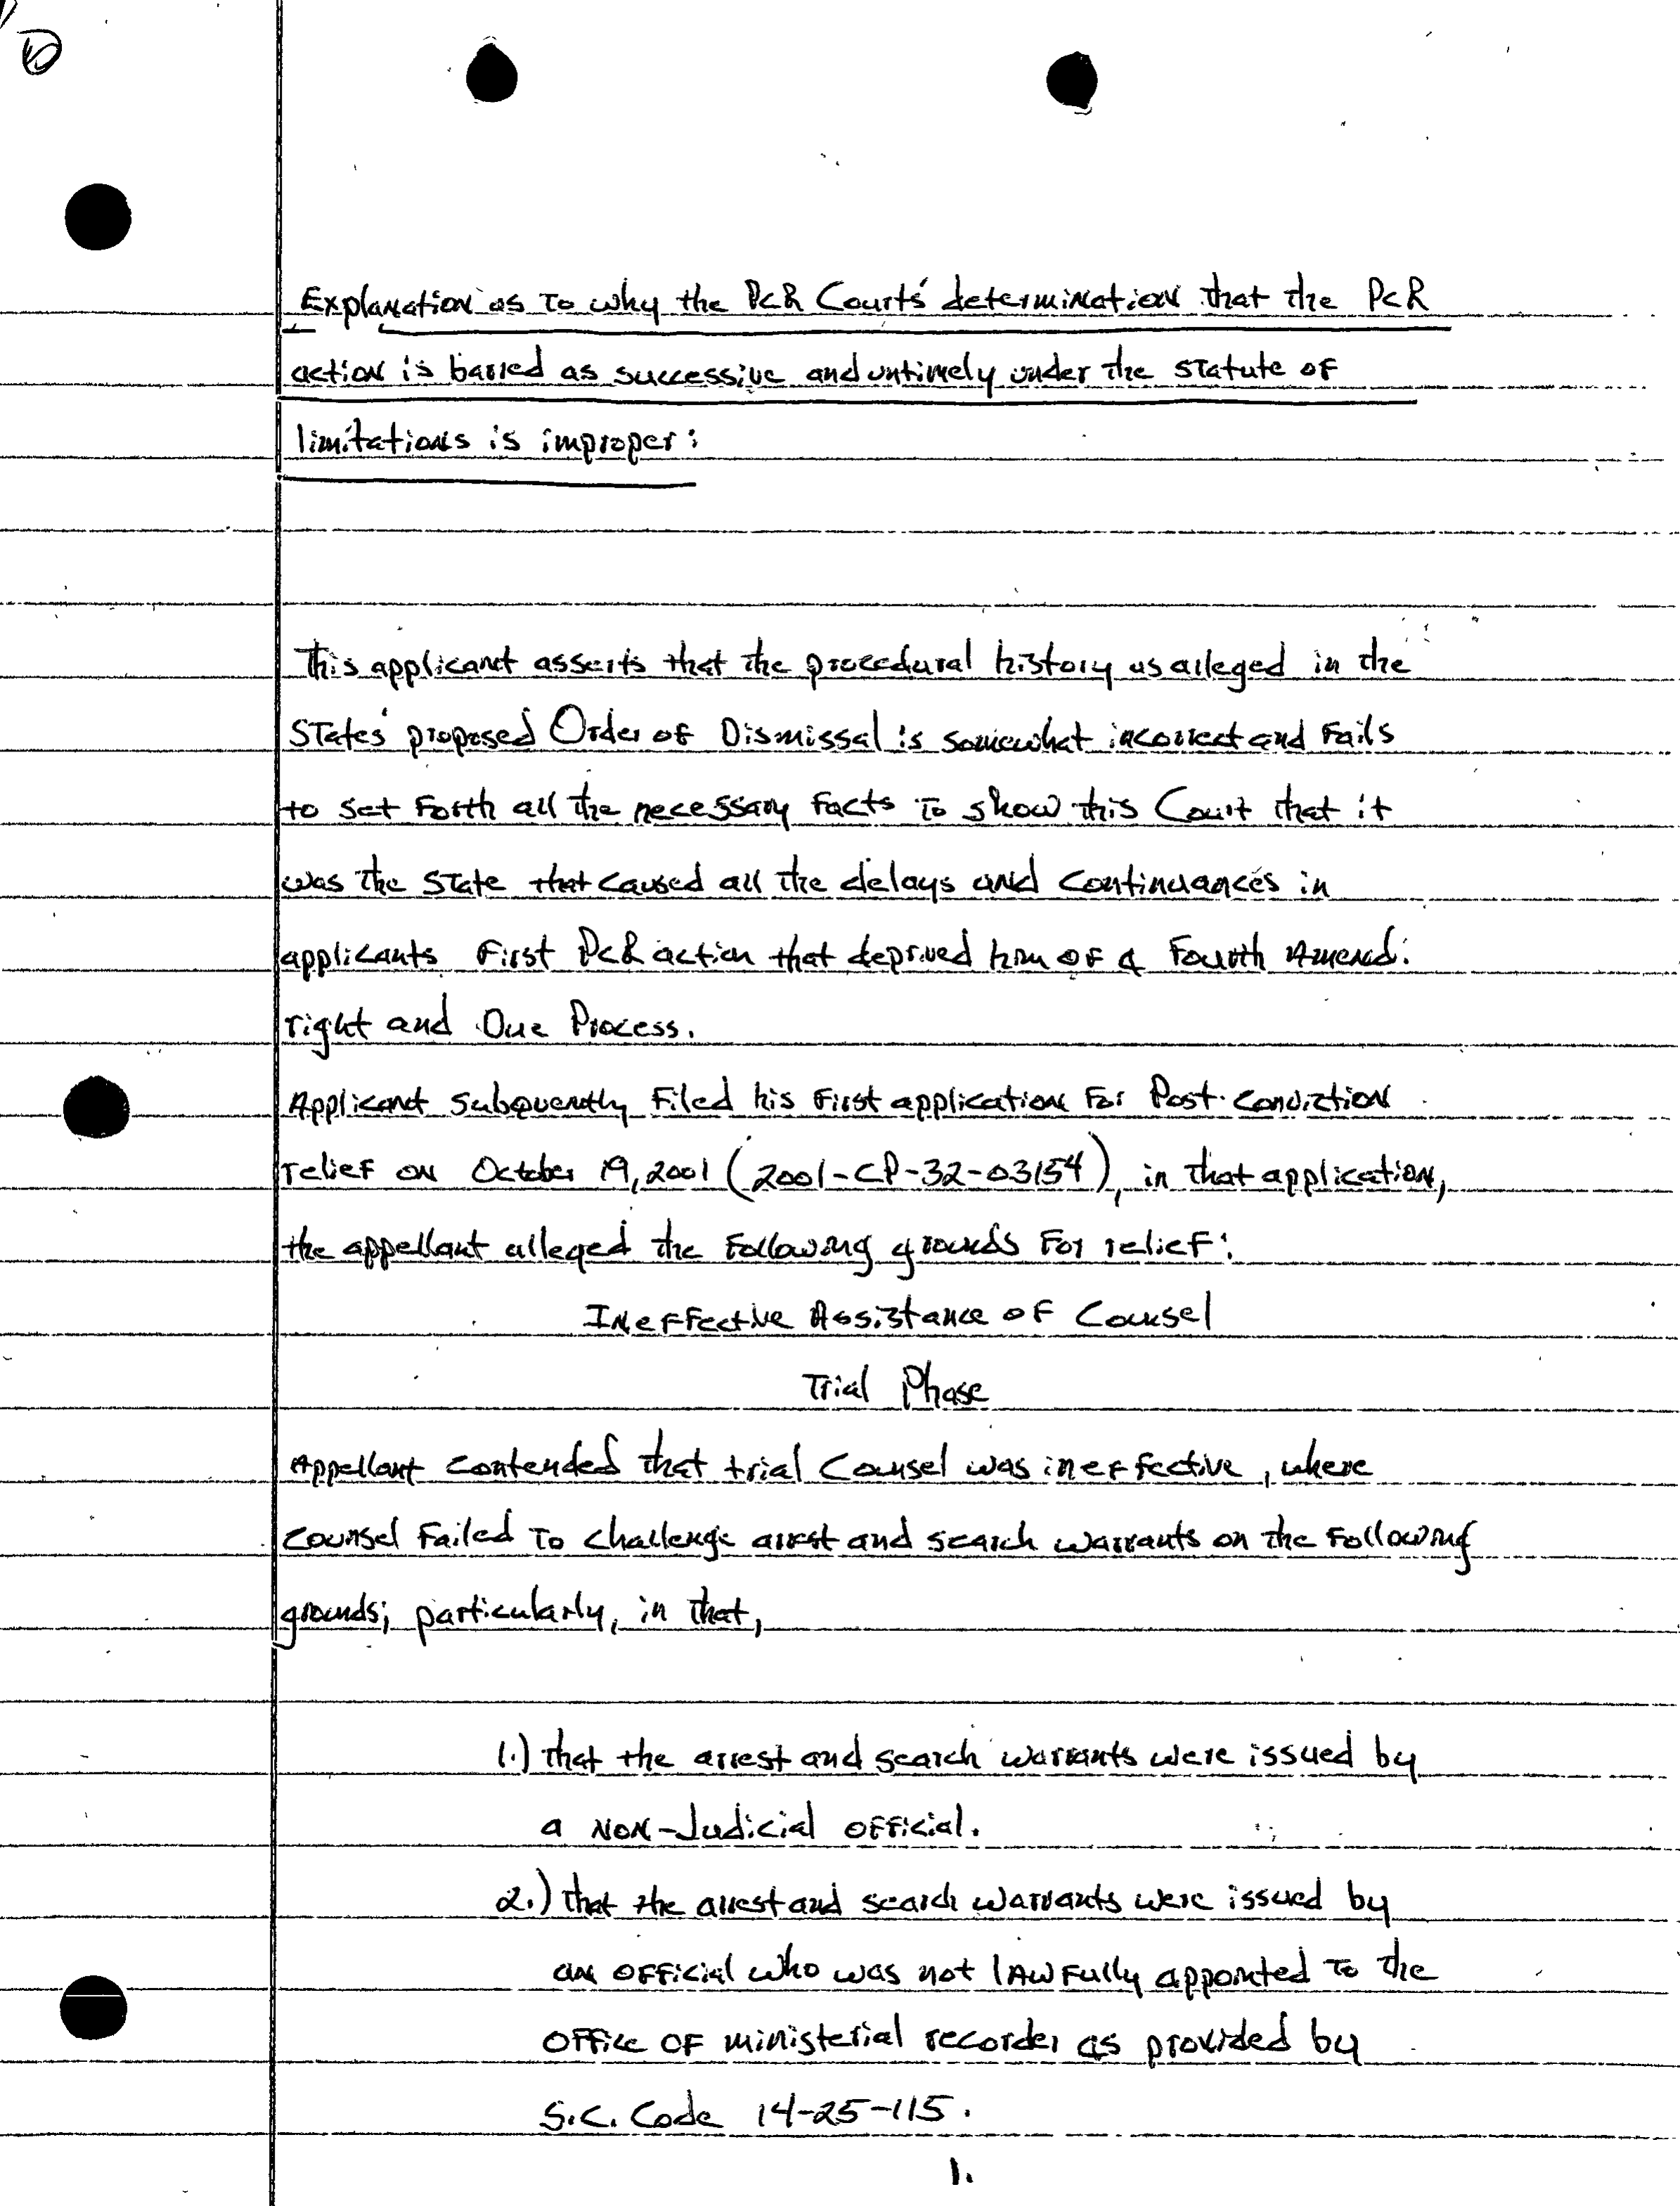 Explanation as to why the PCR Courts' determination that the PCR
action is barred as successive and untimely under the statute of
limitations is improper:
This applicant asserts that the procedural history as alleged in the
States' proposed Order of Dismissal is somewhat incorrect and fails
to set forth all the necessary facts to show this Court that it
was the State that caused all the delays and continuances in
applicants first PCR action that deprived him of a Fourth Amend.
right and Due Process.
Applicant subquently filed his first application for Post-Conviction
relief on October 19, 2001 (2001-CP-32-03154), in that application,
the appellant alleged the following grounds for relief:
Ineffective Assistance of Counsel
Trial Phase
Appellant contended that trial Counsel was ineffective, where
counsel failed to challenge arrest and search warrants on the following
grounds; particularly, in that,
1.) that the arrest and search warrants were issued by
a non-Judicial official.
2.) that the arrest and search warrants were issued by
an official who was not lawfully appointed to the
office of ministerial recorder as provided by
S.C. Code 14-25-115.
1.